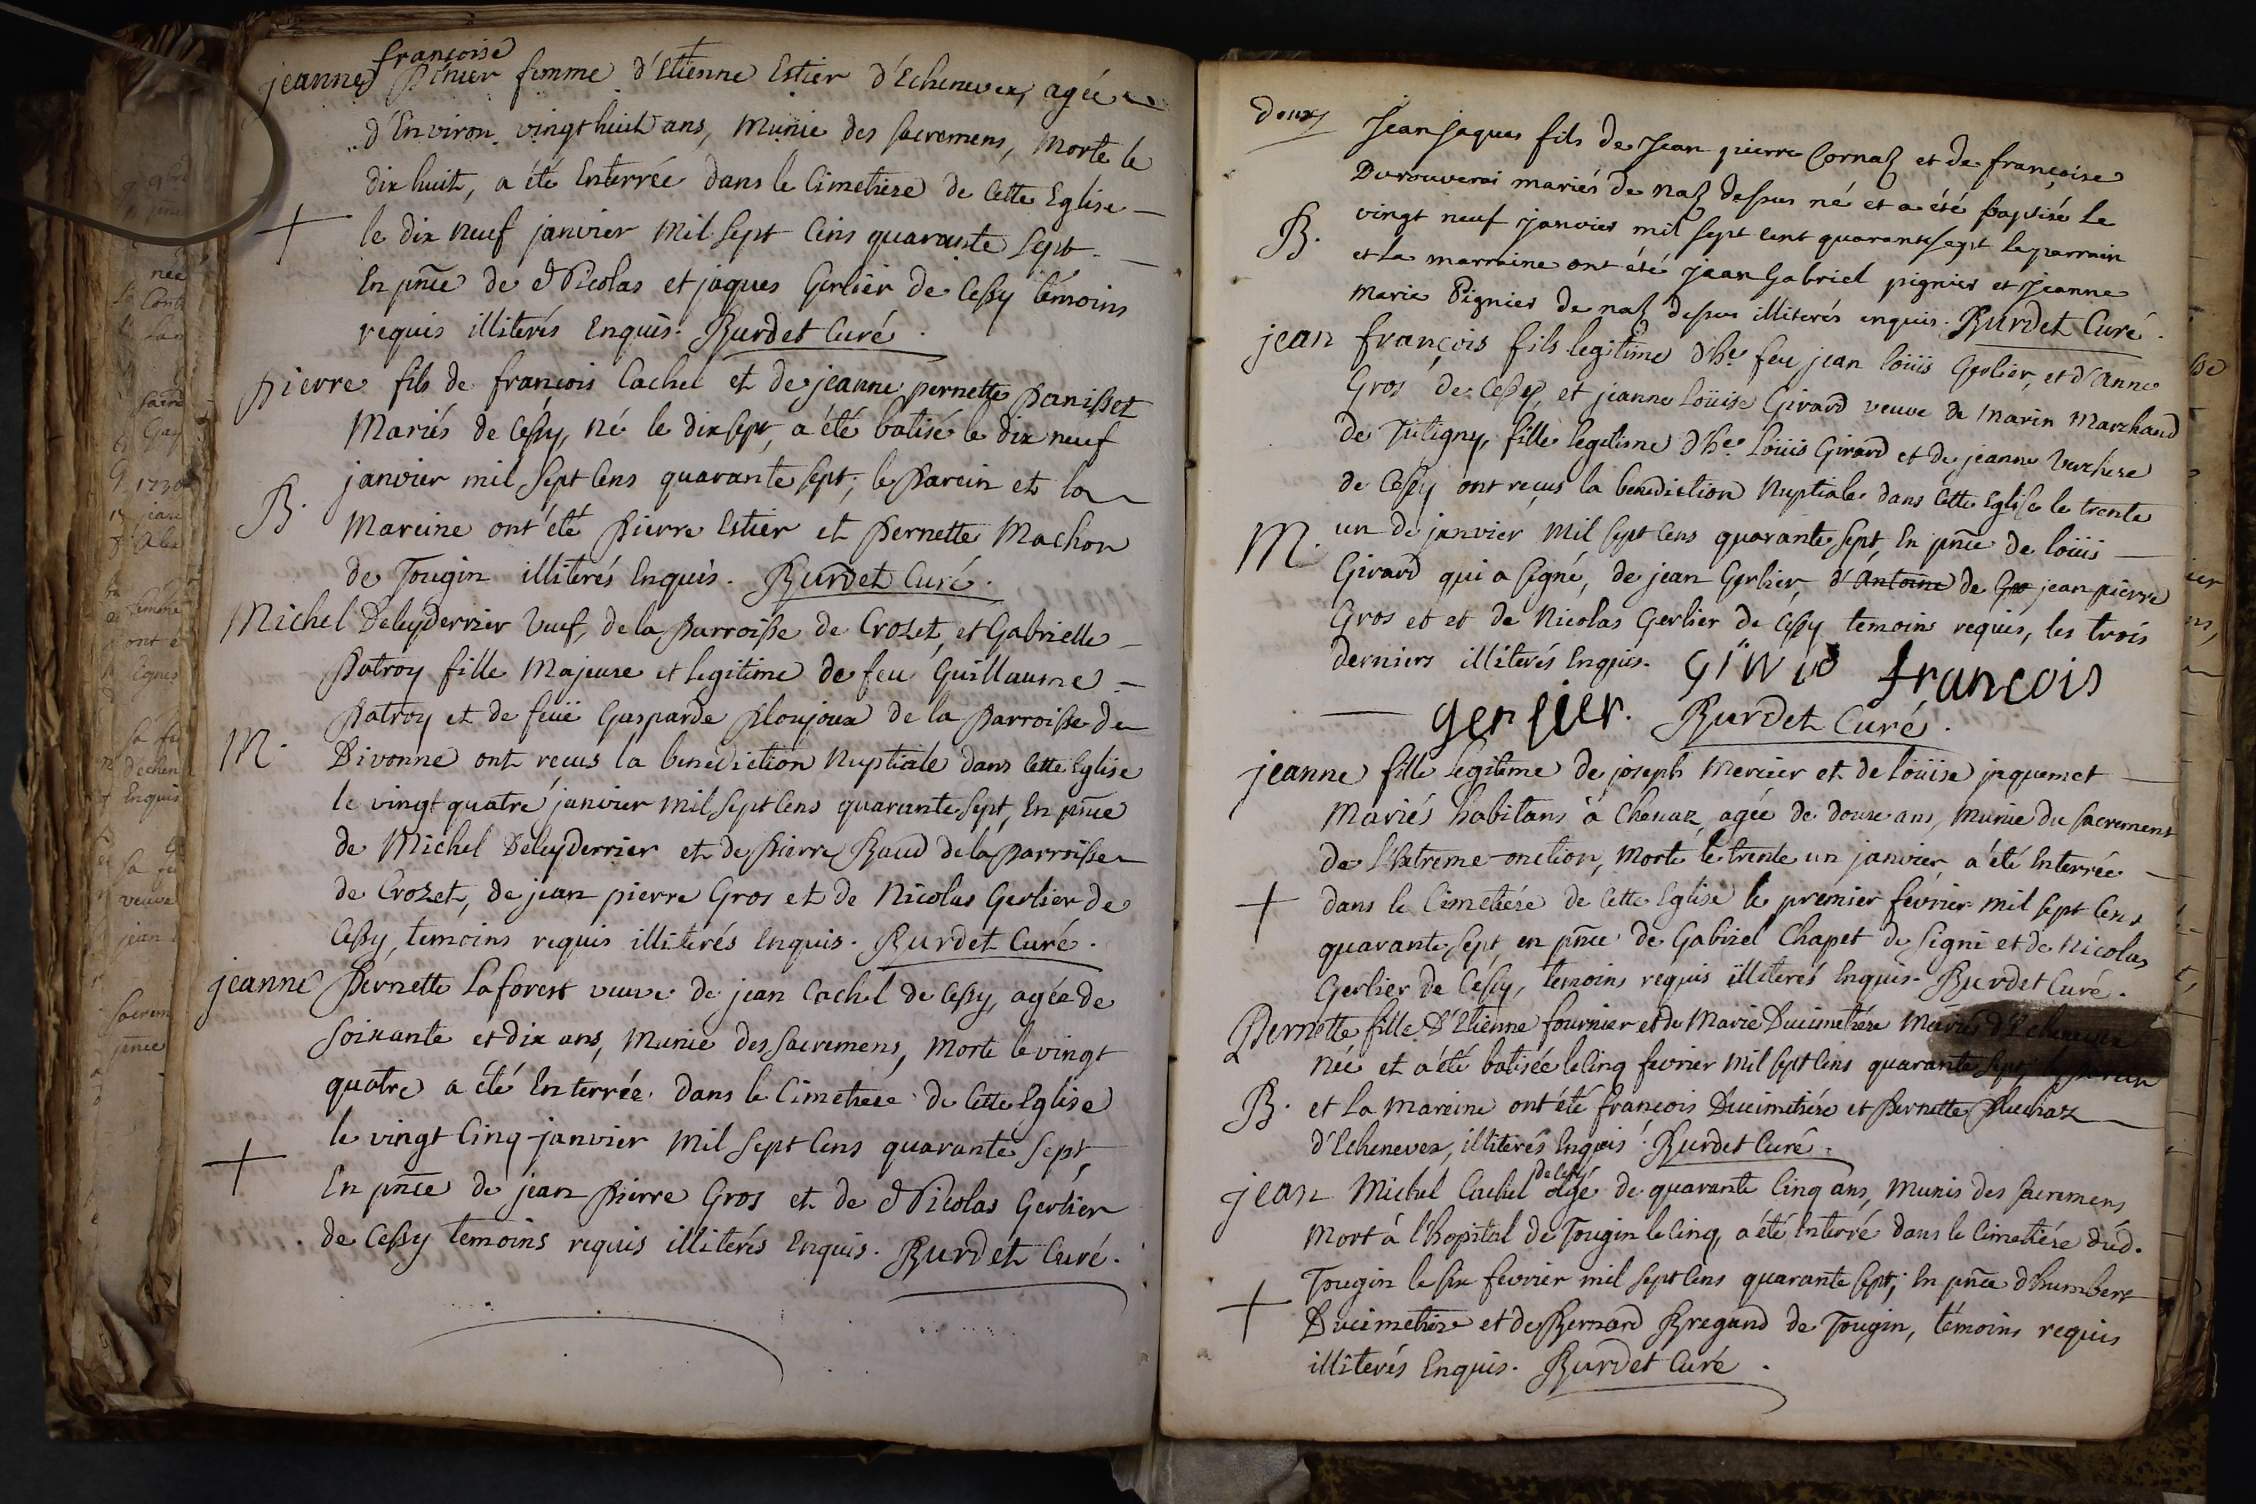 françoise
jeanne Penier femme d'Etienne Estier d'Echenevex, agée
d'Environ vingt huit ans, Munie des sacremens, Morte le
dix huit, a été Enterrée dans le Cimetiere de Cette Eglise
+ le dix neuf janvier Mil Sept Cens quarante Sept
En pnce de Nicolas et jaques Gerlier de Cessy témoins
requis illiterés Enquis. Burdet Curé.
pierre fils de françois Cachet et de jeanne pernette Panisset
Mariés de Cessy, né le dix sept, a été batisé le dix neuf
janvier mil Sept Cens quarante sept; le Parein et la
B. Mareine ont été Pierre Estier et Pernette Machon
de Tougin illiterés Enquis. Burdet Curé.
Michel Deleyderrier Veuf, de la Parroisse de Crozet, et Gabrielle
Patroy fille Majeure et legitime de feu Guillaume
Patroy et de feuë Gasparde Ploujoux de la Parroisse de
M. Divonne ont reçus la benediction Nuptiale dans Cette Eglise
le vingt quatre janvier mil Sept Cens quarante Sept, En pnce
de Michel Deleyderrier et de Pierre Baud de la Parroisse
de Crozet, de jean pierre Gros et de Nicolas Gerlier de
Cessy, temoins requis illiterés Enquis. Burdet Curé.
jeanne Pernette Laforest veuve de jean Cachet de Cessy, agée de
soixante et dix ans, Munie des Sacremens, Morte le vingt
quatre a été Enterrée dans le Cimetiere de Cette Eglise
le vingt Cinq janvier Mil Sept Cens quarante Sept
+ En pnce de jean Pierre Gros et de Nicolas Gerlier
de Cessy temoins requis illiterés Enquis. Burdet Curé.
deux Jean Jaques fils de Jean pierre Cornaz et de françoise
Durouverai mariés de Naz dessus né et a été baptisé le
vingt neuf janvier mil sept cent quarante sept le parrain
B. et la marraine ont été Jean Gabriel pignier et Jeanne
Marie Pignier de naz dessus illiterés enquis. Burdet Curé.
jean françois fils legitime d'he. feu jean loüis Gerlier, et d'Anne
Gros de Cessy, et jeanne Loüise Girard veuve de Marin Marchand
de Tutigny, fille legitime d'he. Loüis Girard et de jeanne Vachere
de Cessy ont reçus la benediction Nuptiale dans Cette Eglise le trente
M. un de janvier Mil sept Cens quarante sept, En pnce de loüis
Girard qui a signé, de jean Gerlier, d'Antoine de Gro jean pierre
Gros et et de Nicolas Gerlier de Cessy temoins requis, les trois
derniers illiterés Enquis. françois
gerlier. Burdet Curé.
jeanne fille Legitime de joseph Mercier et de loüise jaquemet
Mariés habitans à Chenaz, agée de douze ans, Munie du sacrement
de L'hetreme-onction, Morte le trente un janvier, a été Enterrée
+ dans le Cimetiére de Cette Eglise le premier fevrier mil sept Cens
quarante sept, en pnce de Gabriel Chapet de Segni et de Nicolas
Gerlier de Cessy, temoins requis illiterés Enquis. Burdet Curé.
Pernette fille D'Etienne fournier et de Marie Ducimetiére Mariés d'Echenevex
née et a été batisée le Cinq fevrier mil sept Cens quarante Sept, le Parein
B. et la Mareine ont été françois Ducimetiére et Pernette Pluchaz
d'Echenevex, illiterés Enquis. Burdet Curé.
de Cessy
jean Michel Cachet agé de quarante Cinq ans, Munis des sacremens
Mort à l'hopital de Tougin le Cinq, a été Enterré dans le Cimetiére dud.
Tougin le six fevrier mil sept Cens quarante sept, En pnce d'humbert
+ Ducimetiére et de Bernard Bregand de Tougin, témoins requis
illiterés Enquis. Burdet Curé.